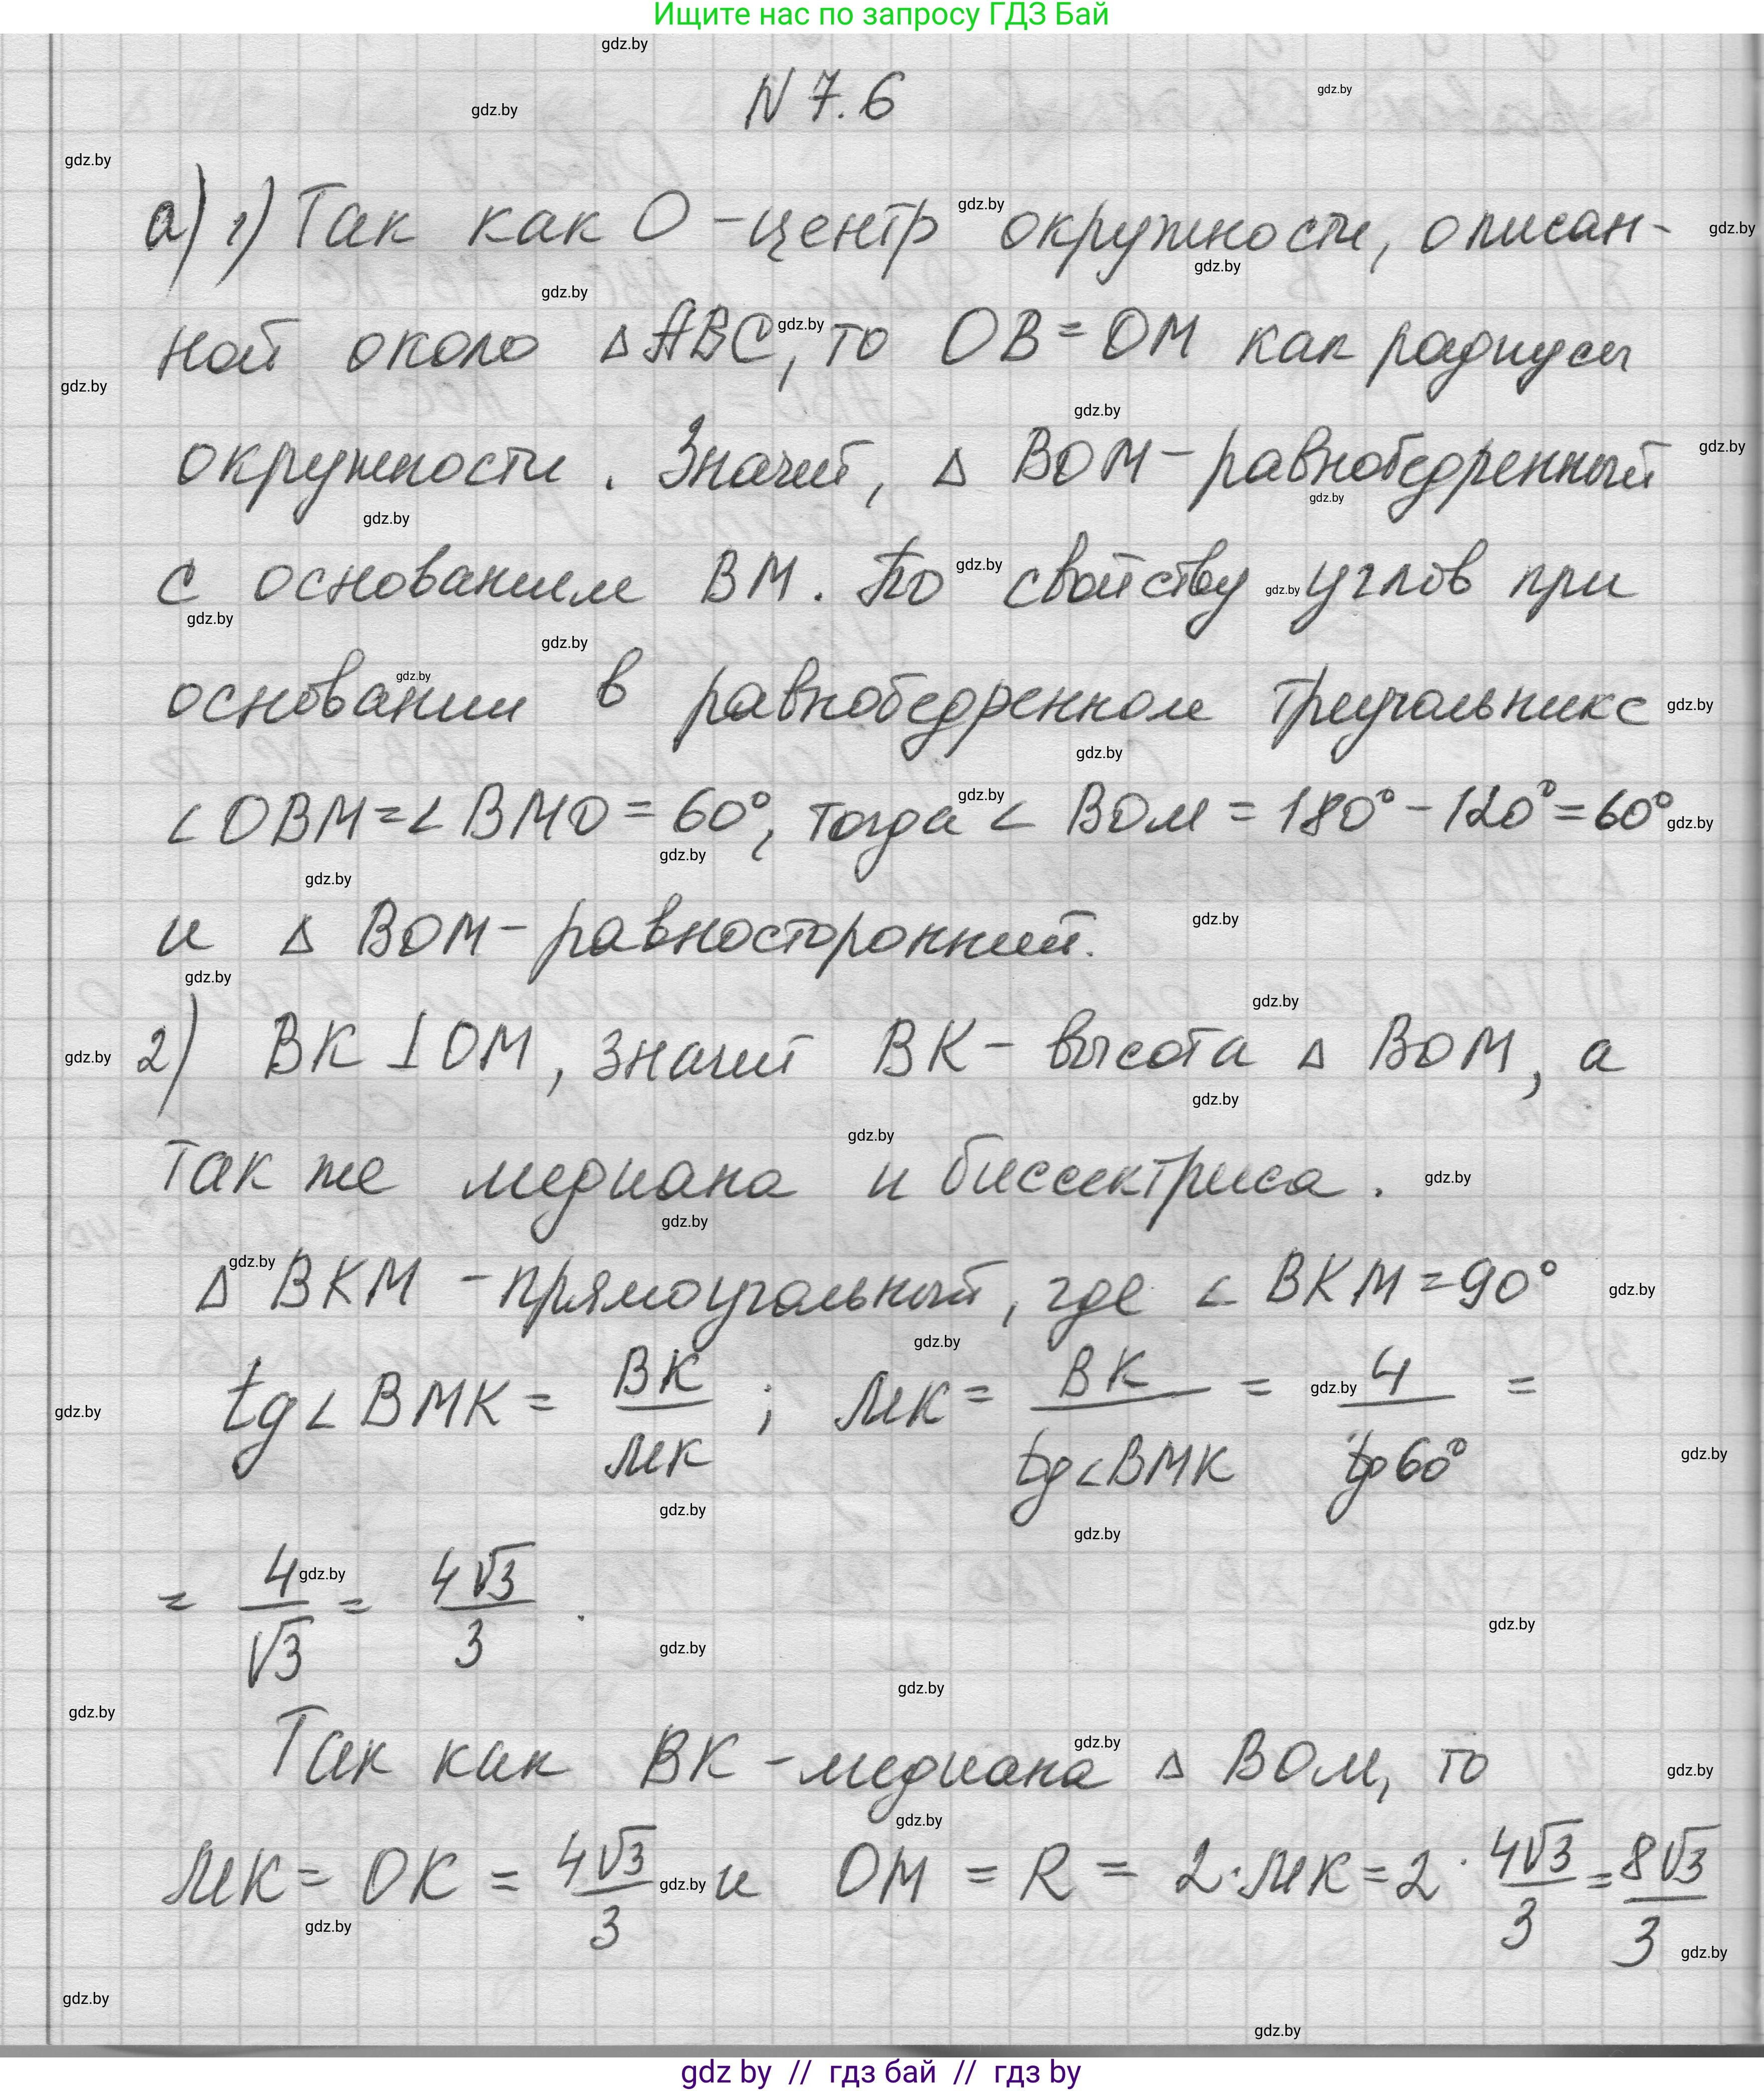 Ищите нас по запросу ГДЗ Бай
N 7.6
а) 1) Так как О - центр окружности, описан-
ной около △ABC, то OB = OM как радиусы
окружности. Значит, △ BOM - равнобедренный
с основанием BM. По свойству углов при
основании в равнобедренном треугольнике
∠OBM = ∠BMO = 60°, тогда ∠ BOM = 180° - 120° = 60°
и △ BOM - равносторонний.
2) BK ⊥ OM, значит BK - высота △ BOM, а
так же медиана и биссектриса.
△ BKM - прямоугольный, где ∠ BKM = 90°
tg∠BMK = BK/MK ; MK = BK/tg∠BMK = 4/tg60° =
= 4/√3 = 4√3/3 .
Так как BK - медиана △ BOM, то
MK = OK = 4√3/3 и OM = R = 2·MK = 2 · 4√3/3 = 8√3/3
gdz by // гдз бай // гдз by